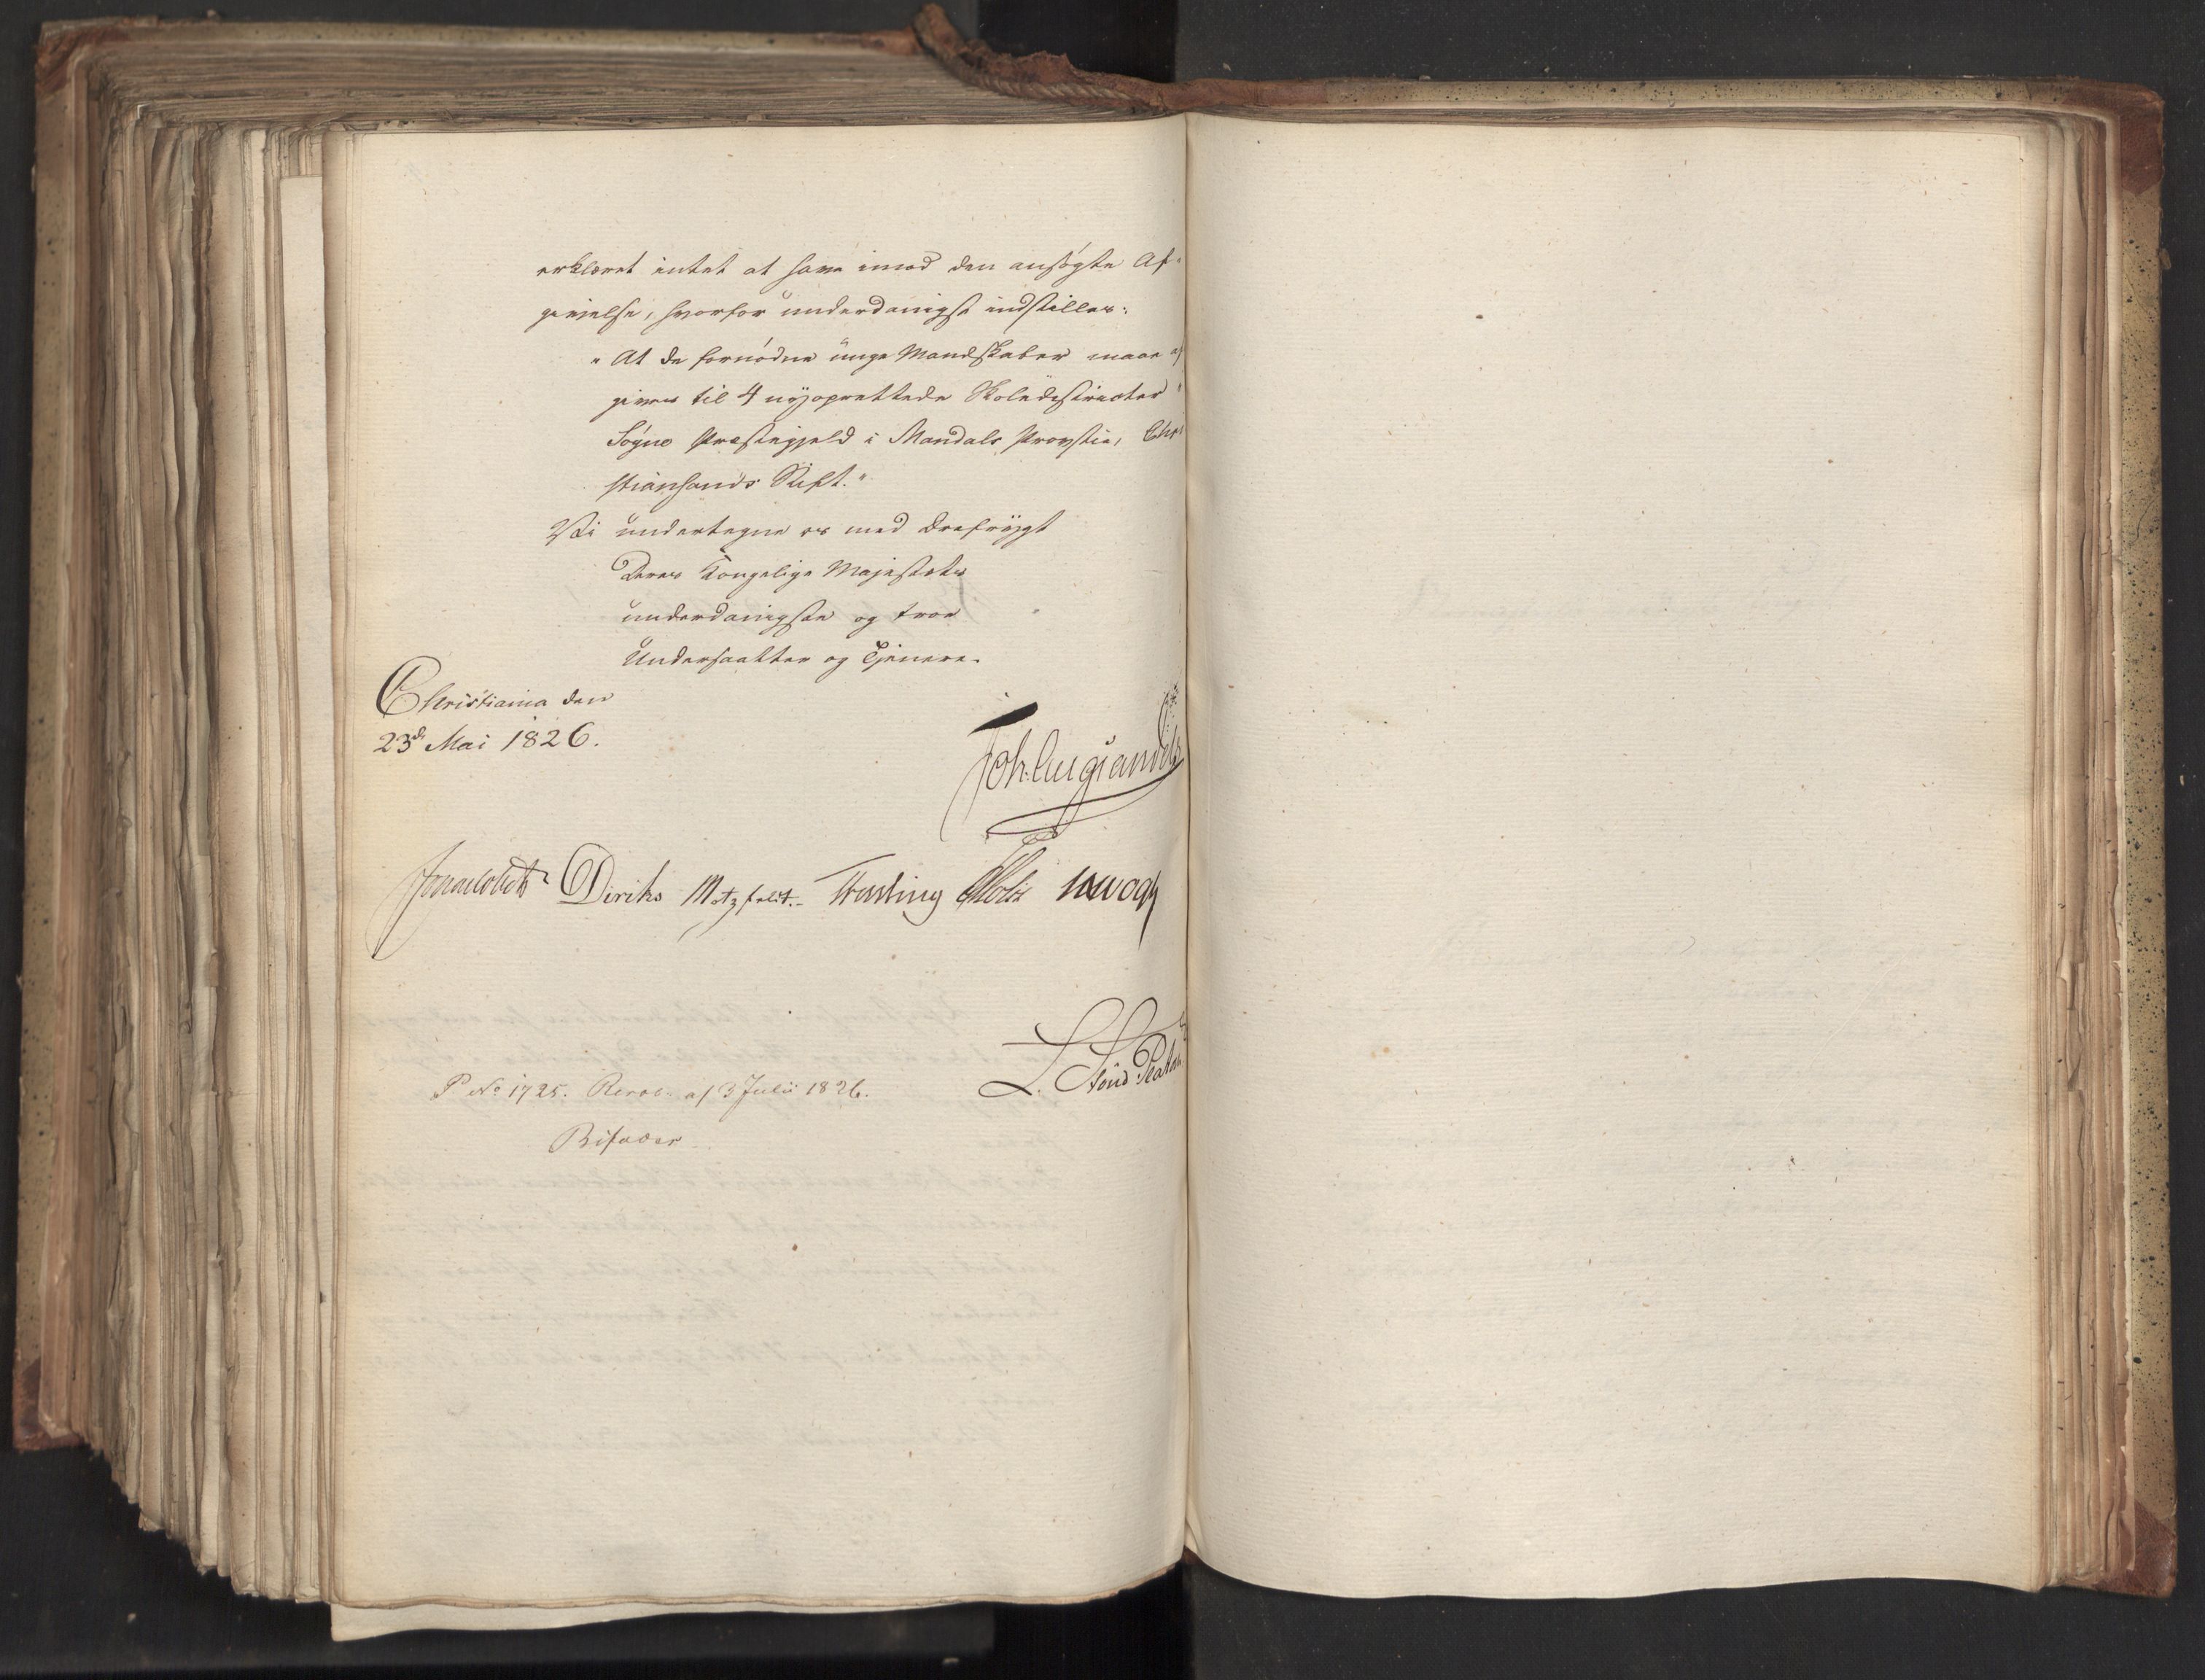 erklæret intet at have imod den ansøgte Af-
givelse, hvorfor underdanigst indstilles:
"At de fornødne unge Mandskaber maae af
gives til 4 nyoprettede Skoledistricter
Søgne Præstegjeld i Mandals Provstie, Chri
stiansands Stift."
Vi undertegne os med Ærefrygt
Deres Kongelige Majestæts
underdanigste og troe
Undersaatter og Tjenere.
Christiania den
23d Mai 1826.
Joh. Aug. Sandels
Jonas Collett Diriks Motzfeldt. Treschow Holst Krog
L. Stoud Platou
P No 1725. Resol. af 3 Julii 1826.
Bifaldes